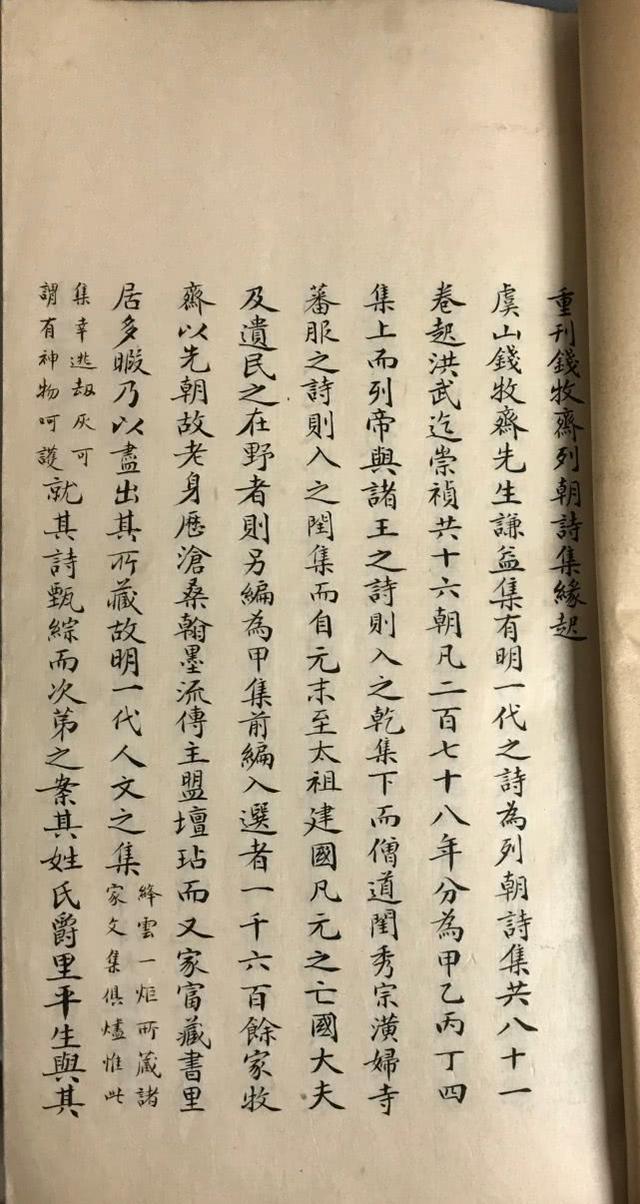 重刊錢牧齋列朝詩集緣起
虞山錢牧齋先生謙益集有明一代之詩為列朝詩集共八十一
卷起洪武迄崇禎共十六朝凡二百七十八年分為甲乙丙丁四
集上而列帝與諸王之詩則入之乾集下而僧道閨秀宗潢婦寺
蕃服之詩則入之閏集而自元末至太祖建國凡元之亡國大夫
及遺民之在野者則另編為甲集前編入選者一千六百餘家牧
齋以先朝故老身歷滄桑翰墨流傳主盟壇坫而又家富藏書里
居多暇乃以盡出其所藏故明一代人文之集
絳雲一炬所藏諸
家文集俱燼惟此
集幸逃劫灰可
謂有神物呵護
就其詩甄綜而次第之案其姓氏爵里平生與其